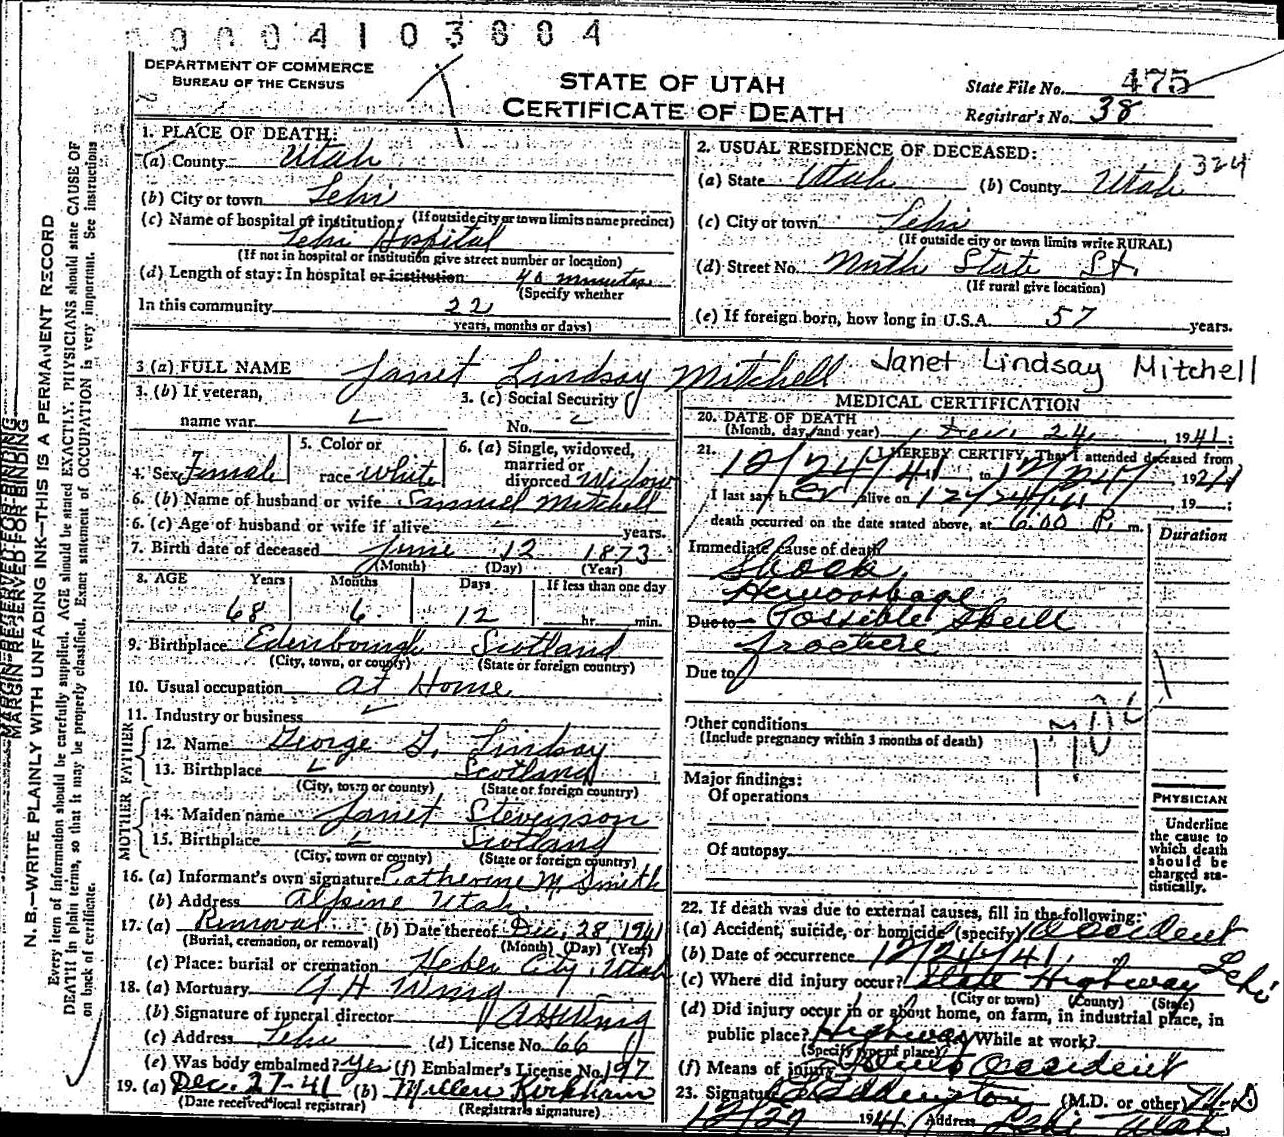 9004103884
DEPARTMENT OF COMMERCE
BUREAU OF THE CENSUS
STATE OF UTAH
CERTIFICATE OF DEATH
State File No. 475
Registrar's No. 38
MARGIN RESERVED FOR BINDING
N. B.—WRITE PLAINLY WITH UNFADING INK—THIS IS A PERMANENT RECORD
Every item of information should be carefully supplied. AGE should be stated EXACTLY. PHYSICIANS should state CAUSE OF
DEATH in plain terms, so that it may be properly classified. Exact statement of OCCUPATION is very important. See instructions
on back of certificate.
1. PLACE OF DEATH:
(a) County Utah
(b) City or town Lehi
(If outside city or town limits name precinct)
(c) Name of hospital or institution:
Lehi Hospital
(If not in hospital or institution give street number or location)
(d) Length of stay: In hospital or institution 40 minutes
(Specify whether
In this community 22
years, months or days)
2. USUAL RESIDENCE OF DECEASED:
324
(a) State Utah (b) County Utah
(c) City or town Lehi
(If outside city or town limits write RURAL)
(d) Street No. North State St.
(If rural give location)
(e) If foreign born, how long in U.S.A. 57 years.
3 (a) FULL NAME Janet Lindsay Mitchell Janet Lindsay Mitchell
3. (b) If veteran,
name war
3. (c) Social Security
No.
4. Sex Female
5. Color or
race white
6. (a) Single, widowed,
married or
divorced Widow
6. (b) Name of husband or wife Samuel Mitchell
6. (c) Age of husband or wife if alive years.
7. Birth date of deceased June 12 1873
(Month) (Day) (Year)
8. AGE Years Months Days If less than one day
68 6 12 hr. min.
9. Birthplace Edinborough Scotland
(City, town, or county) (State or foreign country)
10. Usual occupation at Home
11. Industry or business
FATHER
12. Name George Lindsay
13. Birthplace Scotland
(City, town or county) (State or foreign country)
MOTHER
14. Maiden name Janet Stevenson
15. Birthplace Scotland
(City, town or county) (State or foreign country)
16. (a) Informant's own signature Catherine M Smith
(b) Address Alpine Utah.
17. (a) Removal (b) Date thereof Dec. 28 1941
(Burial, cremation, or removal) (Month) (Day) (Year)
(c) Place: burial or cremation Heber City, Utah
18. (a) Mortuary A H Wing
(b) Signature of funeral director
(c) Address Lehi (d) License No. 66
(e) Was body embalmed? Yes (f) Embalmer's License No. 197
19. (a) Dec. 27-41 (b) Millen Kirkham
(Date received local registrar) (Registrar's signature)
MEDICAL CERTIFICATION
20. DATE OF DEATH
(Month, day, and year) Dec. 24, 1941.
21. I HEREBY CERTIFY, That I attended deceased from
12/24/41, to 12/24, 1941
I last saw her alive on 12/24/41, 19
death occurred on the date stated above, at 6:00 P. m.
Duration
Immediate cause of death
Shock
Hemorrhage
Due to Possible Skull
fracture
Due to
Other conditions
(Include pregnancy within 3 months of death)
Major findings:
Of operations
Of autopsy
PHYSICIAN
Underline
the cause to
which death
should be
charged sta-
tistically.
22. If death was due to external causes, fill in the following:
(a) Accident, suicide, or homicide (specify) Accident
(b) Date of occurrence 12/24/41.
(c) Where did injury occur? State Highway Lehi
(City or town) (County) (State)
(d) Did injury occur in or about home, on farm, in industrial place, in
public place? Highway While at work?
(Specify type of place)
(f) Means of injury Auto Accident
23. Signature Eddington (M.D. or other) M.D
12/27 1941 Address Lehi Utah